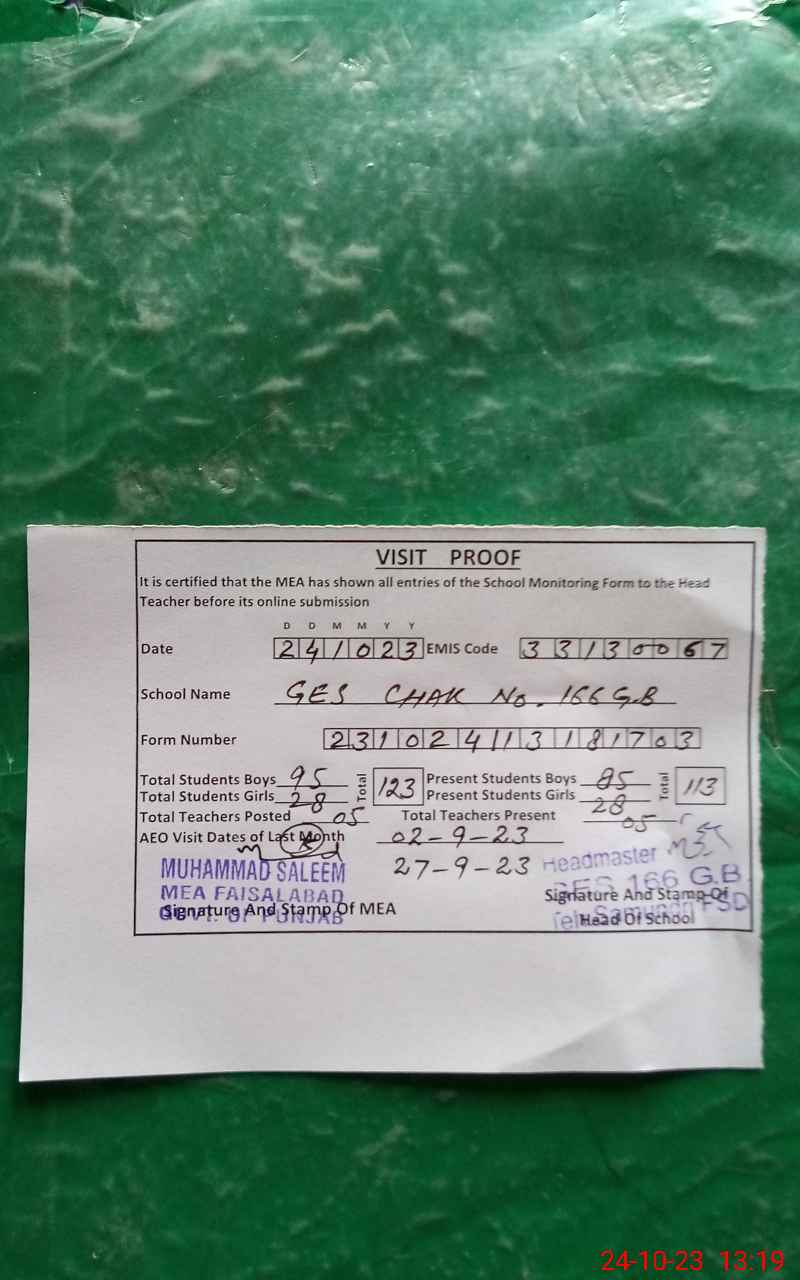 VISIT PROOF
It is certified that the MEA has shown all entries of the School Monitoring Form to the Head
Teacher before its online submission
D D M M Y Y
Date 241023 EMIS Code 33130067
School Name GES CHAK No. 166 G.B
Form Number 231024113181703
Total Students Boys 95 Total 123 Present Students Boys 85 Total 113
Total Students Girls 28 Present Students Girls 28
Total Teachers Posted 05 Total Teachers Present 05
AEO Visit Dates of Last Month 02-9-23
27-9-23
MUHAMMAD SALEEM
MEA FAISALABAD
GOVT. OF PUNJAB
Signature And Stamp Of MEA
Headmaster
GES 166 G.B
Signature And Stamp Of
Head Of School
24-10-23 13:19